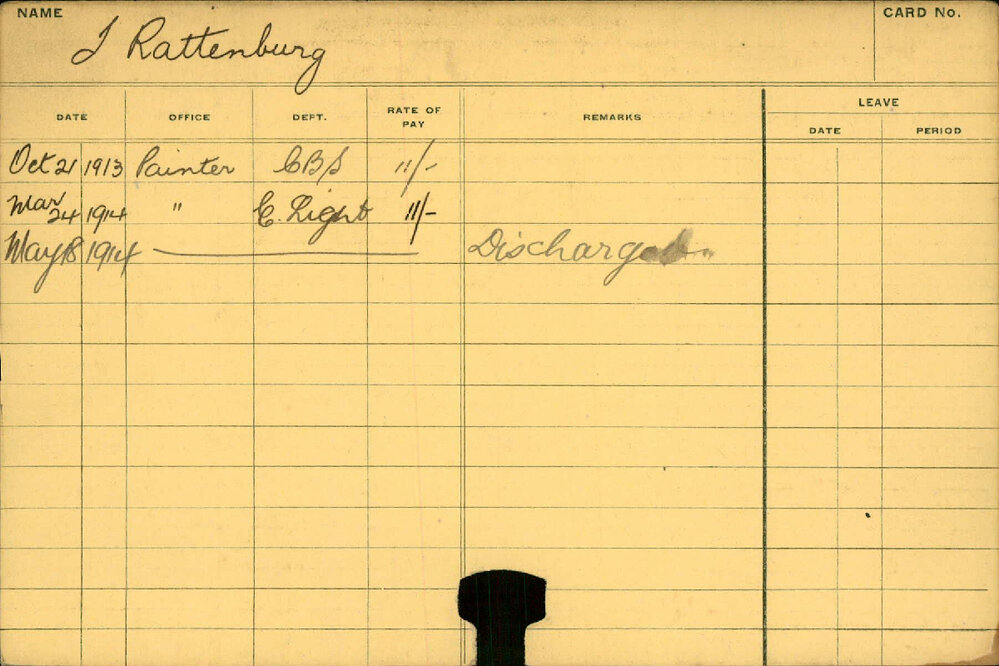 NAME J Rattenburg CARD No.
DATE OFFICE DEPT. RATE OF PAY REMARKS LEAVE
DATE PERIOD
Oct 21 1913 Painter CBS 11/-
Mar 24 1914 " E. Light 11/-
May 18 1914 Discharged